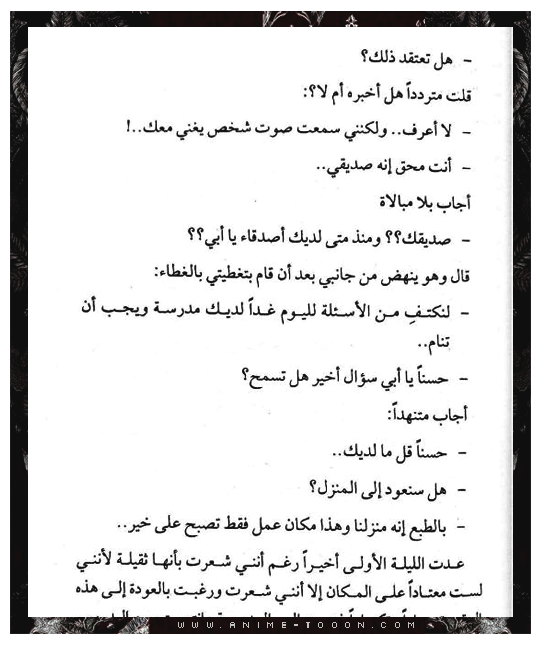 – هل تعتقد ذلك؟
قلت متردداً هل أخبره أم لا؟:
– لا أعرف.. ولكنني سمعت صوت شخص يغني معك..!
– أنت محق إنه صديقي..
أجاب بلا مبالاة
– صديقك؟؟ ومنذ متى لديك أصدقاء يا أبي؟؟
قال وهو ينهض من جانبي بعد أن قام بتغطيتي بالغطاء:
– لنكتفِ من الأسئلة لليوم غداً لديك مدرسة ويجب أن
تنام..
– حسناً يا أبي سؤال أخير هل تسمح؟
أجاب متنهداً:
– حسناً قل ما لديك..
– هل سنعود إلى المنزل؟
– بالطبع إنه منزلنا وهذا مكان عمل فقط تصبح على خير..
عدت الليلة الأولى أخيراً رغم أنني شعرت بأنها ثقيلة لأنني
لست معتاداً على المكان إلا أنني شعرت ورغبت بالعودة إلى هذه
WWW.ANIME-TOOON.COM